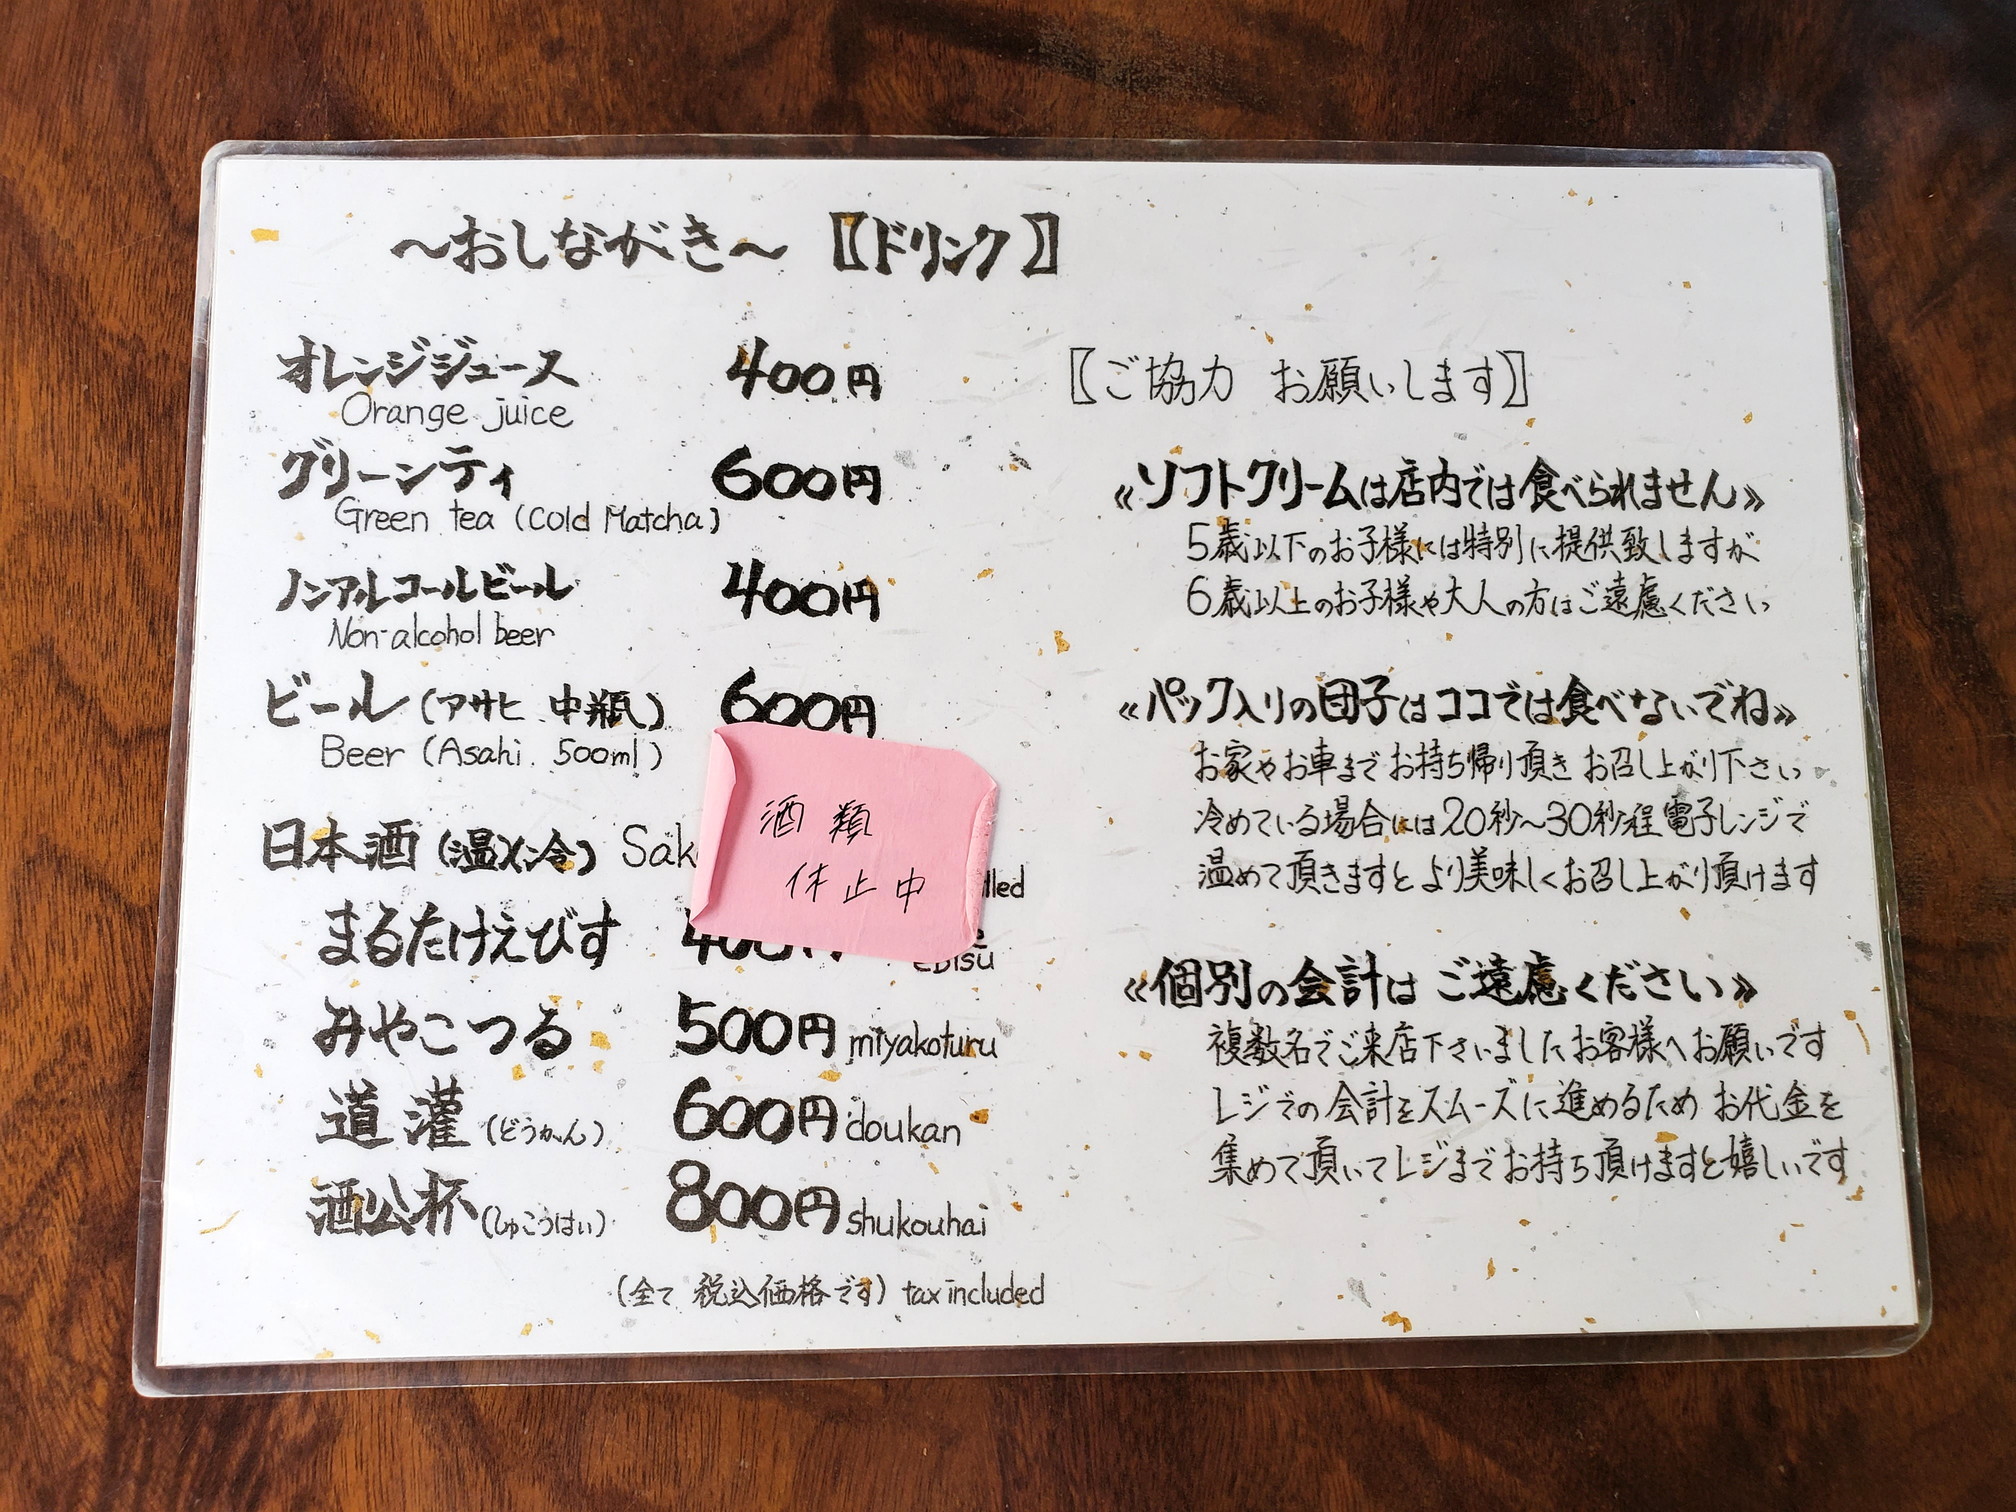 ～おしながき～ 〖ドリンク〗
オレンジジュース 400円
Orange juice
グリーンティ 600円
Green tea (Cold Matcha)
ノンアルコールビール 400円
Non-alcohol beer
ビール (アサヒ 中瓶) 600円
Beer (Asahi. 500ml)
日本酒 (温)(冷)
酒類
休止中
まるたけえびす
EBISU
みやこつる 500円 miyakoturu
道灌 (どうかん) 600円 doukan
酒公杯 (しゅこうはい) 800円 shukouhai
(全て 税込価格です) tax included
〖ご協力 お願いします〗
《ソフトクリームは店内では食べられません》
5歳以下のお子様には特別に提供致しますが
6歳以上のお子様や大人の方はご遠慮ください
《パック入りの団子はココでは食べないでね》
お家やお車までお持ち帰り頂き お召し上がり下さい
冷めている場合には20秒～30秒程電子レンジで
温めて頂きますと より美味しくお召し上がり頂けます
《個別の会計は ご遠慮ください》
複数名でご来店下さいましたお客様へお願いです
レジでの会計をスムーズに進めるため お代金を
集めて頂いてレジまでお持ち頂けますと嬉しいです